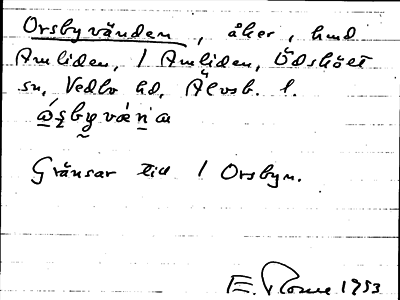 Orsbyvänden, åker, hmd
Åmliden, 1 Åmliden, Ödskölt
sn, Vedbo hd, Älvsb. l.

Gränsar till 1 Orsbyn.
E. 1953